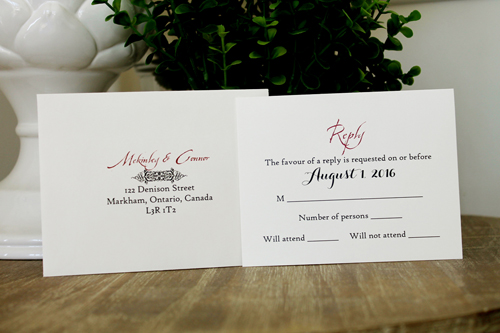 Mckinley & Connor
122 Denison Street
Markham, Ontario, Canada
L3R 1T2
Reply
The favour of a reply is requested on or before
August 1, 2016
M
Number of persons
Will attend Will not attend